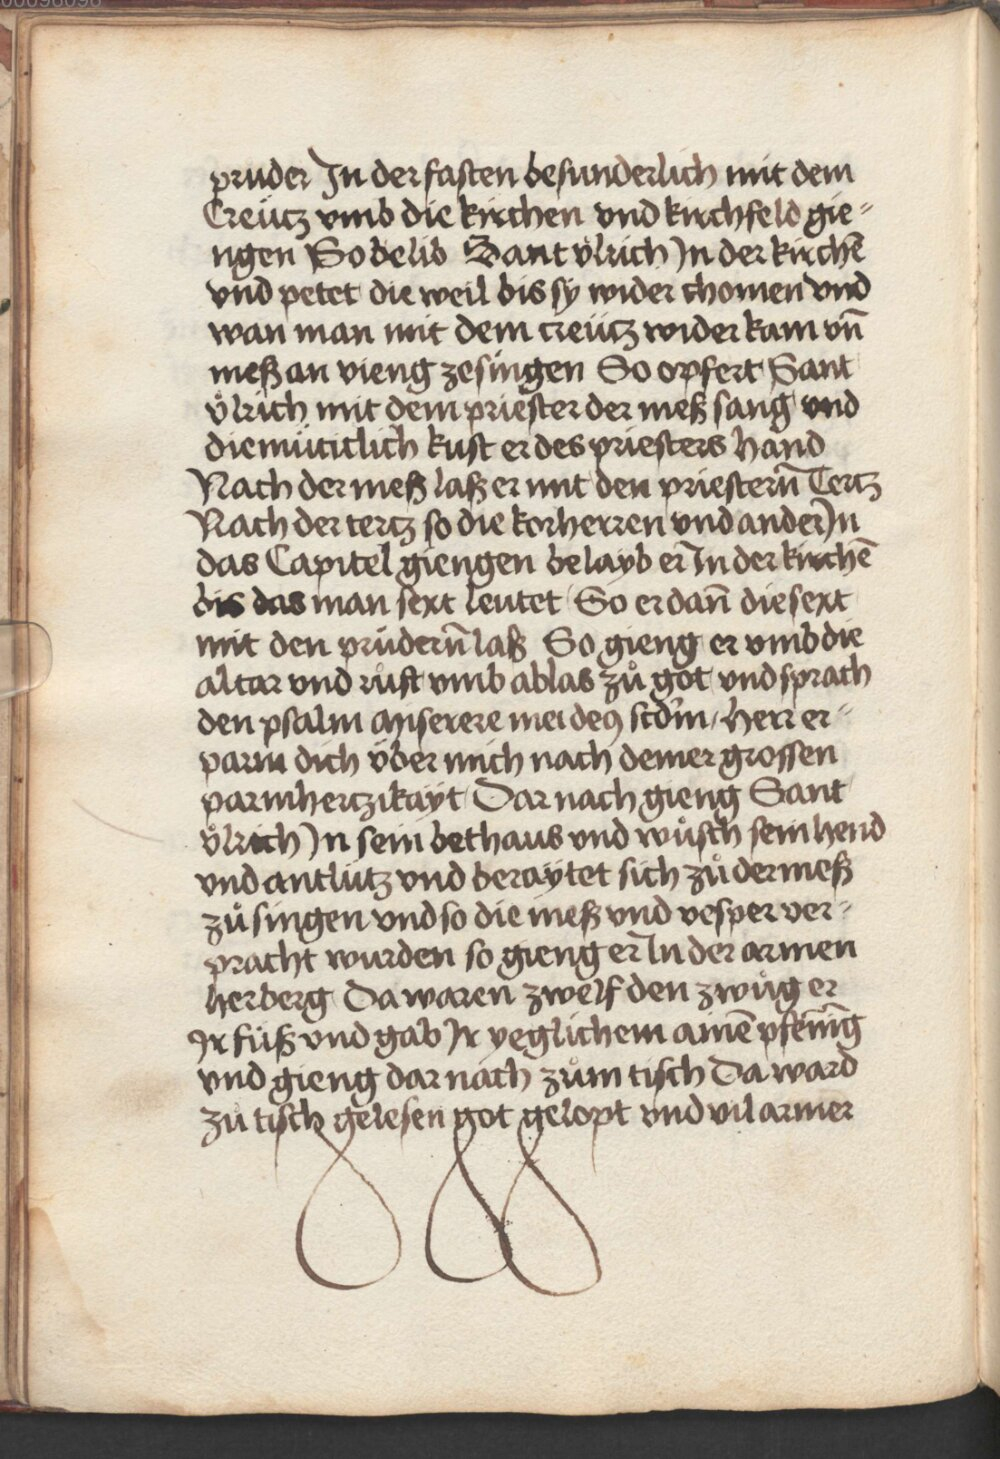 pruder In der fasten besunderlich mit dem
Creütz vmb die kirchen vnd kirchfeld gie⸗
ngen So belib Sant vͦlrich In der kirchē
vnd petet die weil bis sy wider chomen vnd
wan man mit dem creütz wider kam vn̄
meß an vieng zesingen So opfert Sant
vͦlrich mit dem priester der meß sang vnd
diemüttitlich kust er des priesters hand
Nach der meß laß er mit den priestern̄ Tertz
Nach der tertz so die korherren vnd ander In
das Capitel giengen belayb er In der kirchē
bis das man sext leutet So er dan̄ die sext
mit den prüdern̄ laß So gieng er vmb die
altar vnd rͦuft vmb ablas zuͦ got vnd sprach
den psalm Miserere mei deꝰ scd'm / Herr er⸗
parm dich vͤber mich nach deiner grossen
parmhertzikayt Dar nach gieng Sant
vͦlrich In sein bethaus vnd wuͦsch sein hend
vnd antlütz vnd beraytet sich zuͦ der meß
zuͦ singen vnd so die meß vnd vesper ver⸗
pracht wurden so gieng er In der armen
herberg Da waren zwelf den zwuͦg er
Ir füß vnd gab Ir yeglichem ainē pfeninḡ
vnd gieng dar nach zuͦm tisch Da ward
zuͦ tisch gelesen got gelopt vnd vil armer